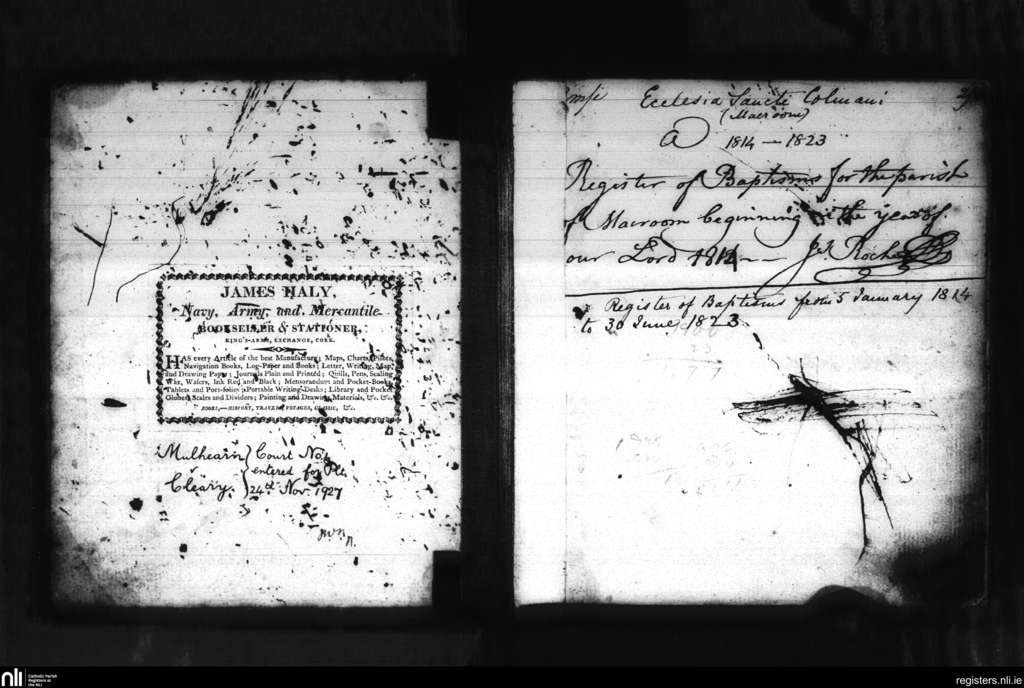 JAMES HALY,
Navy, Army, and Mercantile
BOOKSELLER & STATIONER,
KING'S-ARMS, EXCHANGE, CORK.
HAS every Article of the best Manufacture; Maps, Charts, Pilots,
Navigation Books, Log-Paper and Books; Letter, Writing, Map,
and Drawing Paper; Journals Plain and Printed; Quills, Pens, Sealing
Wax, Wafers, Ink Red and Black; Memorandum and Pocket-Books,
Tablets and Port-folios; Portable Writing-Desks; Library and Pocket
Globes, Scales and Dividers; Painting and Drawing Materials, &c. &c.
BOOKS,—HISTORY, TRAVELS, VOYAGES, CLASSIC, &c.
Mulhearn } Court No 4
Cleary. } entered for Plt.
24th Nov. 1927
Ecclesia Sancti Colmani
(Macroom)
A 1814 — 1823
Register of Baptisms for the parish
of Macroom beginning in the year of
our Lord 1814 -- Js. Roche
Register of Baptisms from 5 January 1814
to 30 June 1823
nli
Catholic Parish
Registers at
the NLI
registers.nli.ie